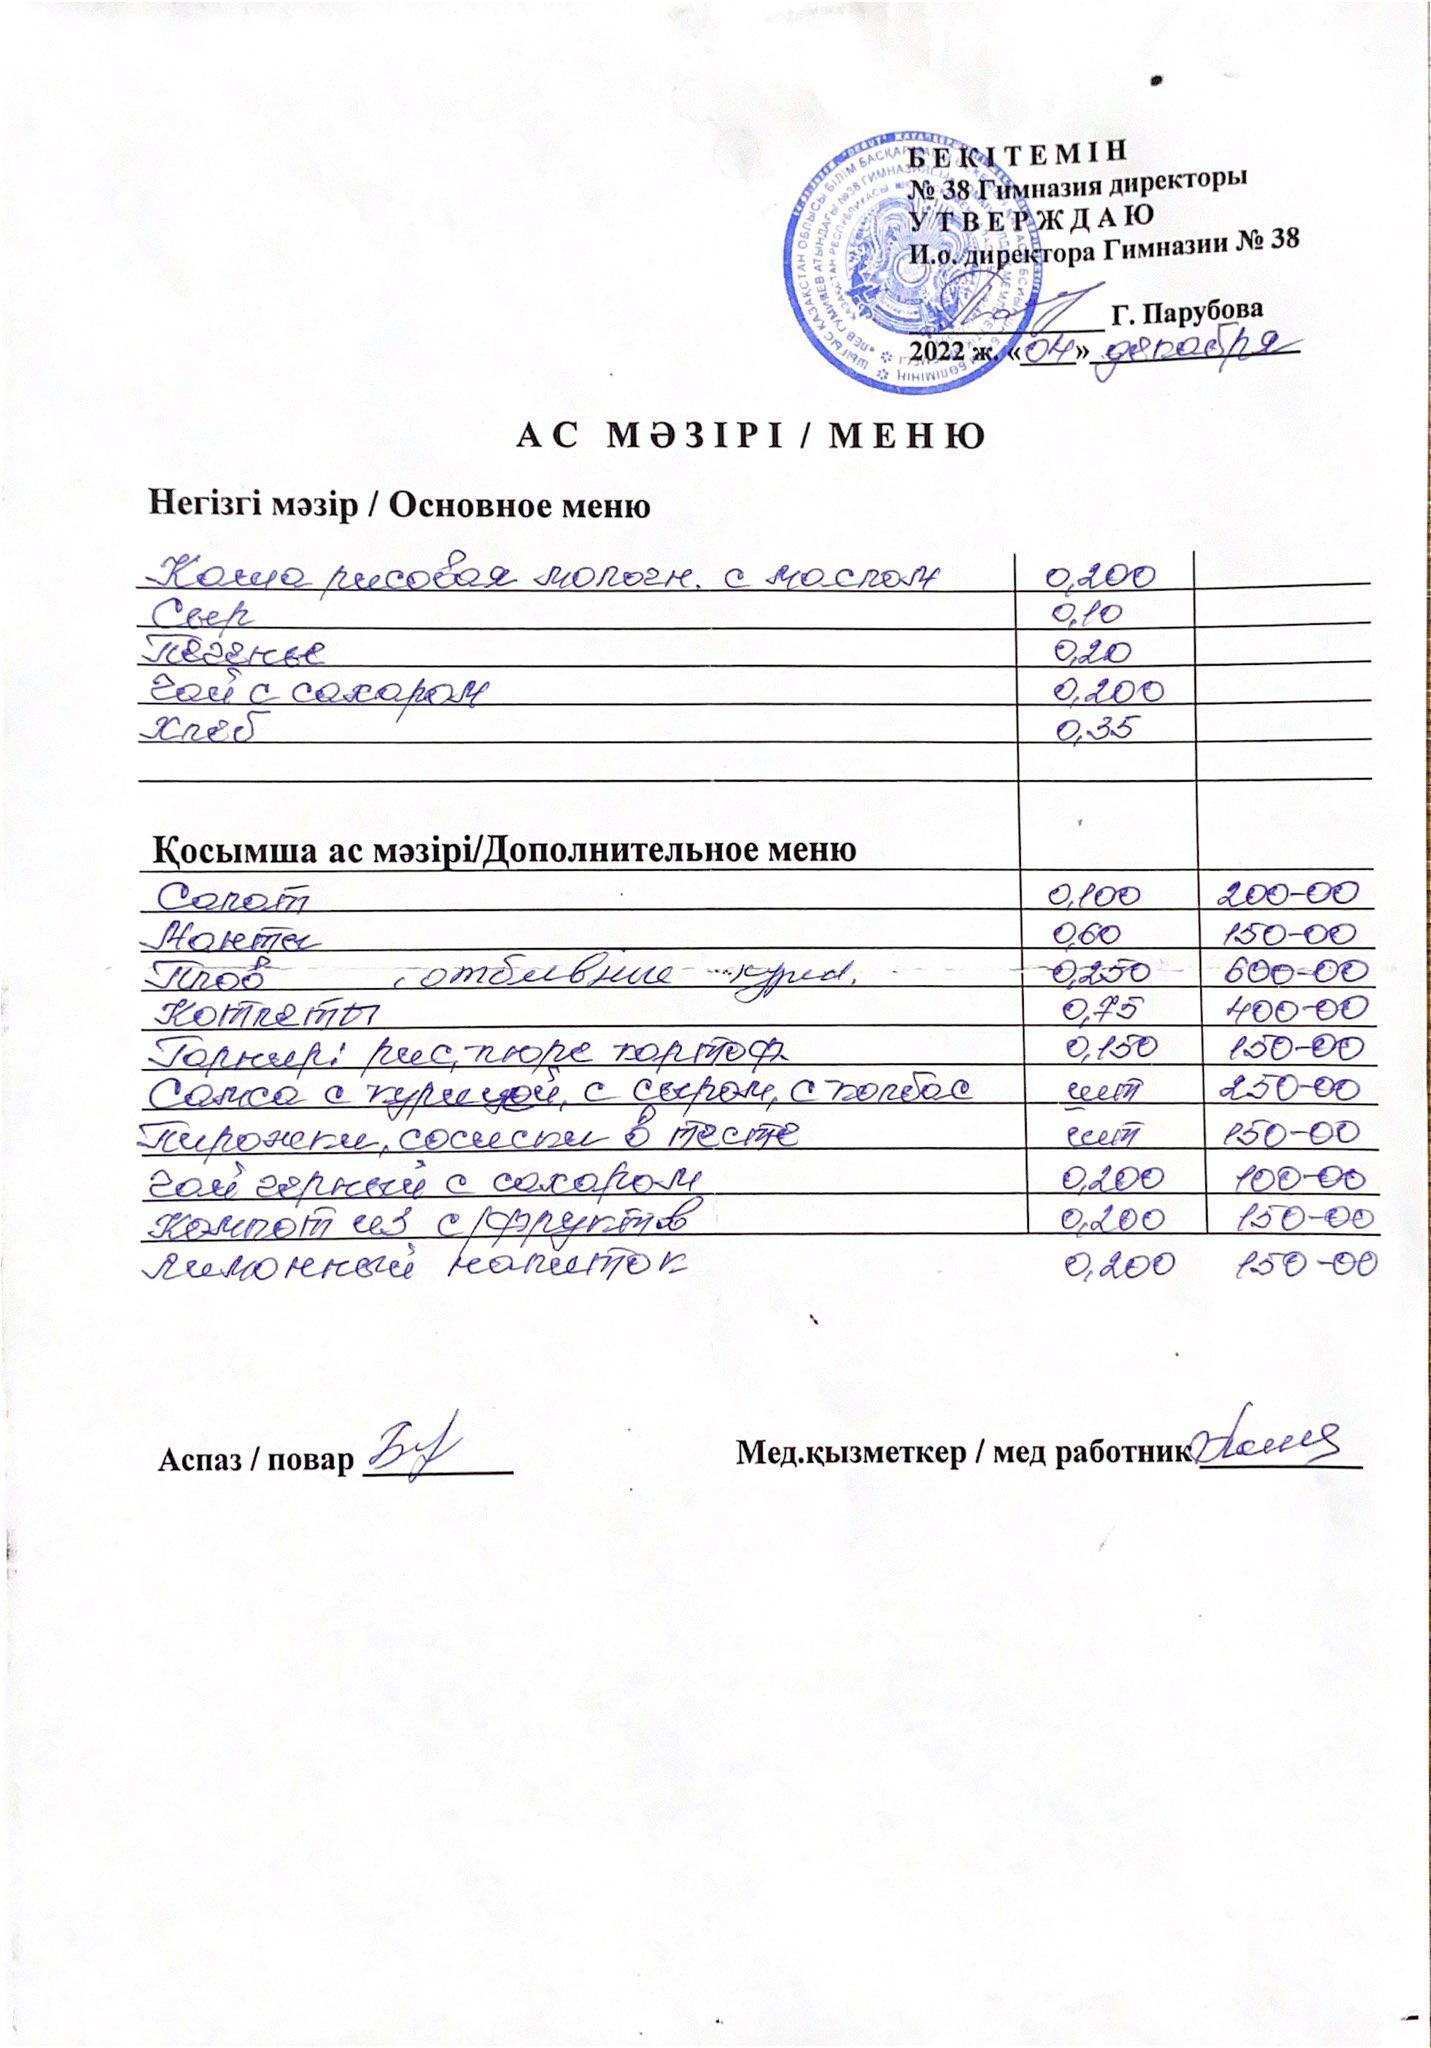 БЕКІТЕМІН
№ 38 Гимназия директоры
УТВЕРЖДАЮ
И.о. директора Гимназии № 38
Г. Парубова
2022 ж. «04» декабря
АС МӘЗІРІ / МЕНЮ
Негізгі мәзір / Основное меню
Каша рисовая молочн. с маслом 0,200
Сыр 0,10
Печенье 0,20
Чай с сахаром 0,200
Хлеб 0,35
Қосымша ас мәзірі/Дополнительное меню
Салат 0,100 200-00
Манты 0,60 150-00
Плов 0,250 600-00
Котлеты 0,75 400-00
Гарнир: рис, пюре картоф. 0,150 150-00
Самса с курицей, с сыром, с колбас шт 250-00
Пирожки, сосиски в тесте шт 150-00
Чай черный с сахаром 0,200 100-00
Компот из с/фруктов 0,200 150-00
Лимонный напиток 0,200 150-00
Аспаз / повар
Мед.қызметкер / мед работник